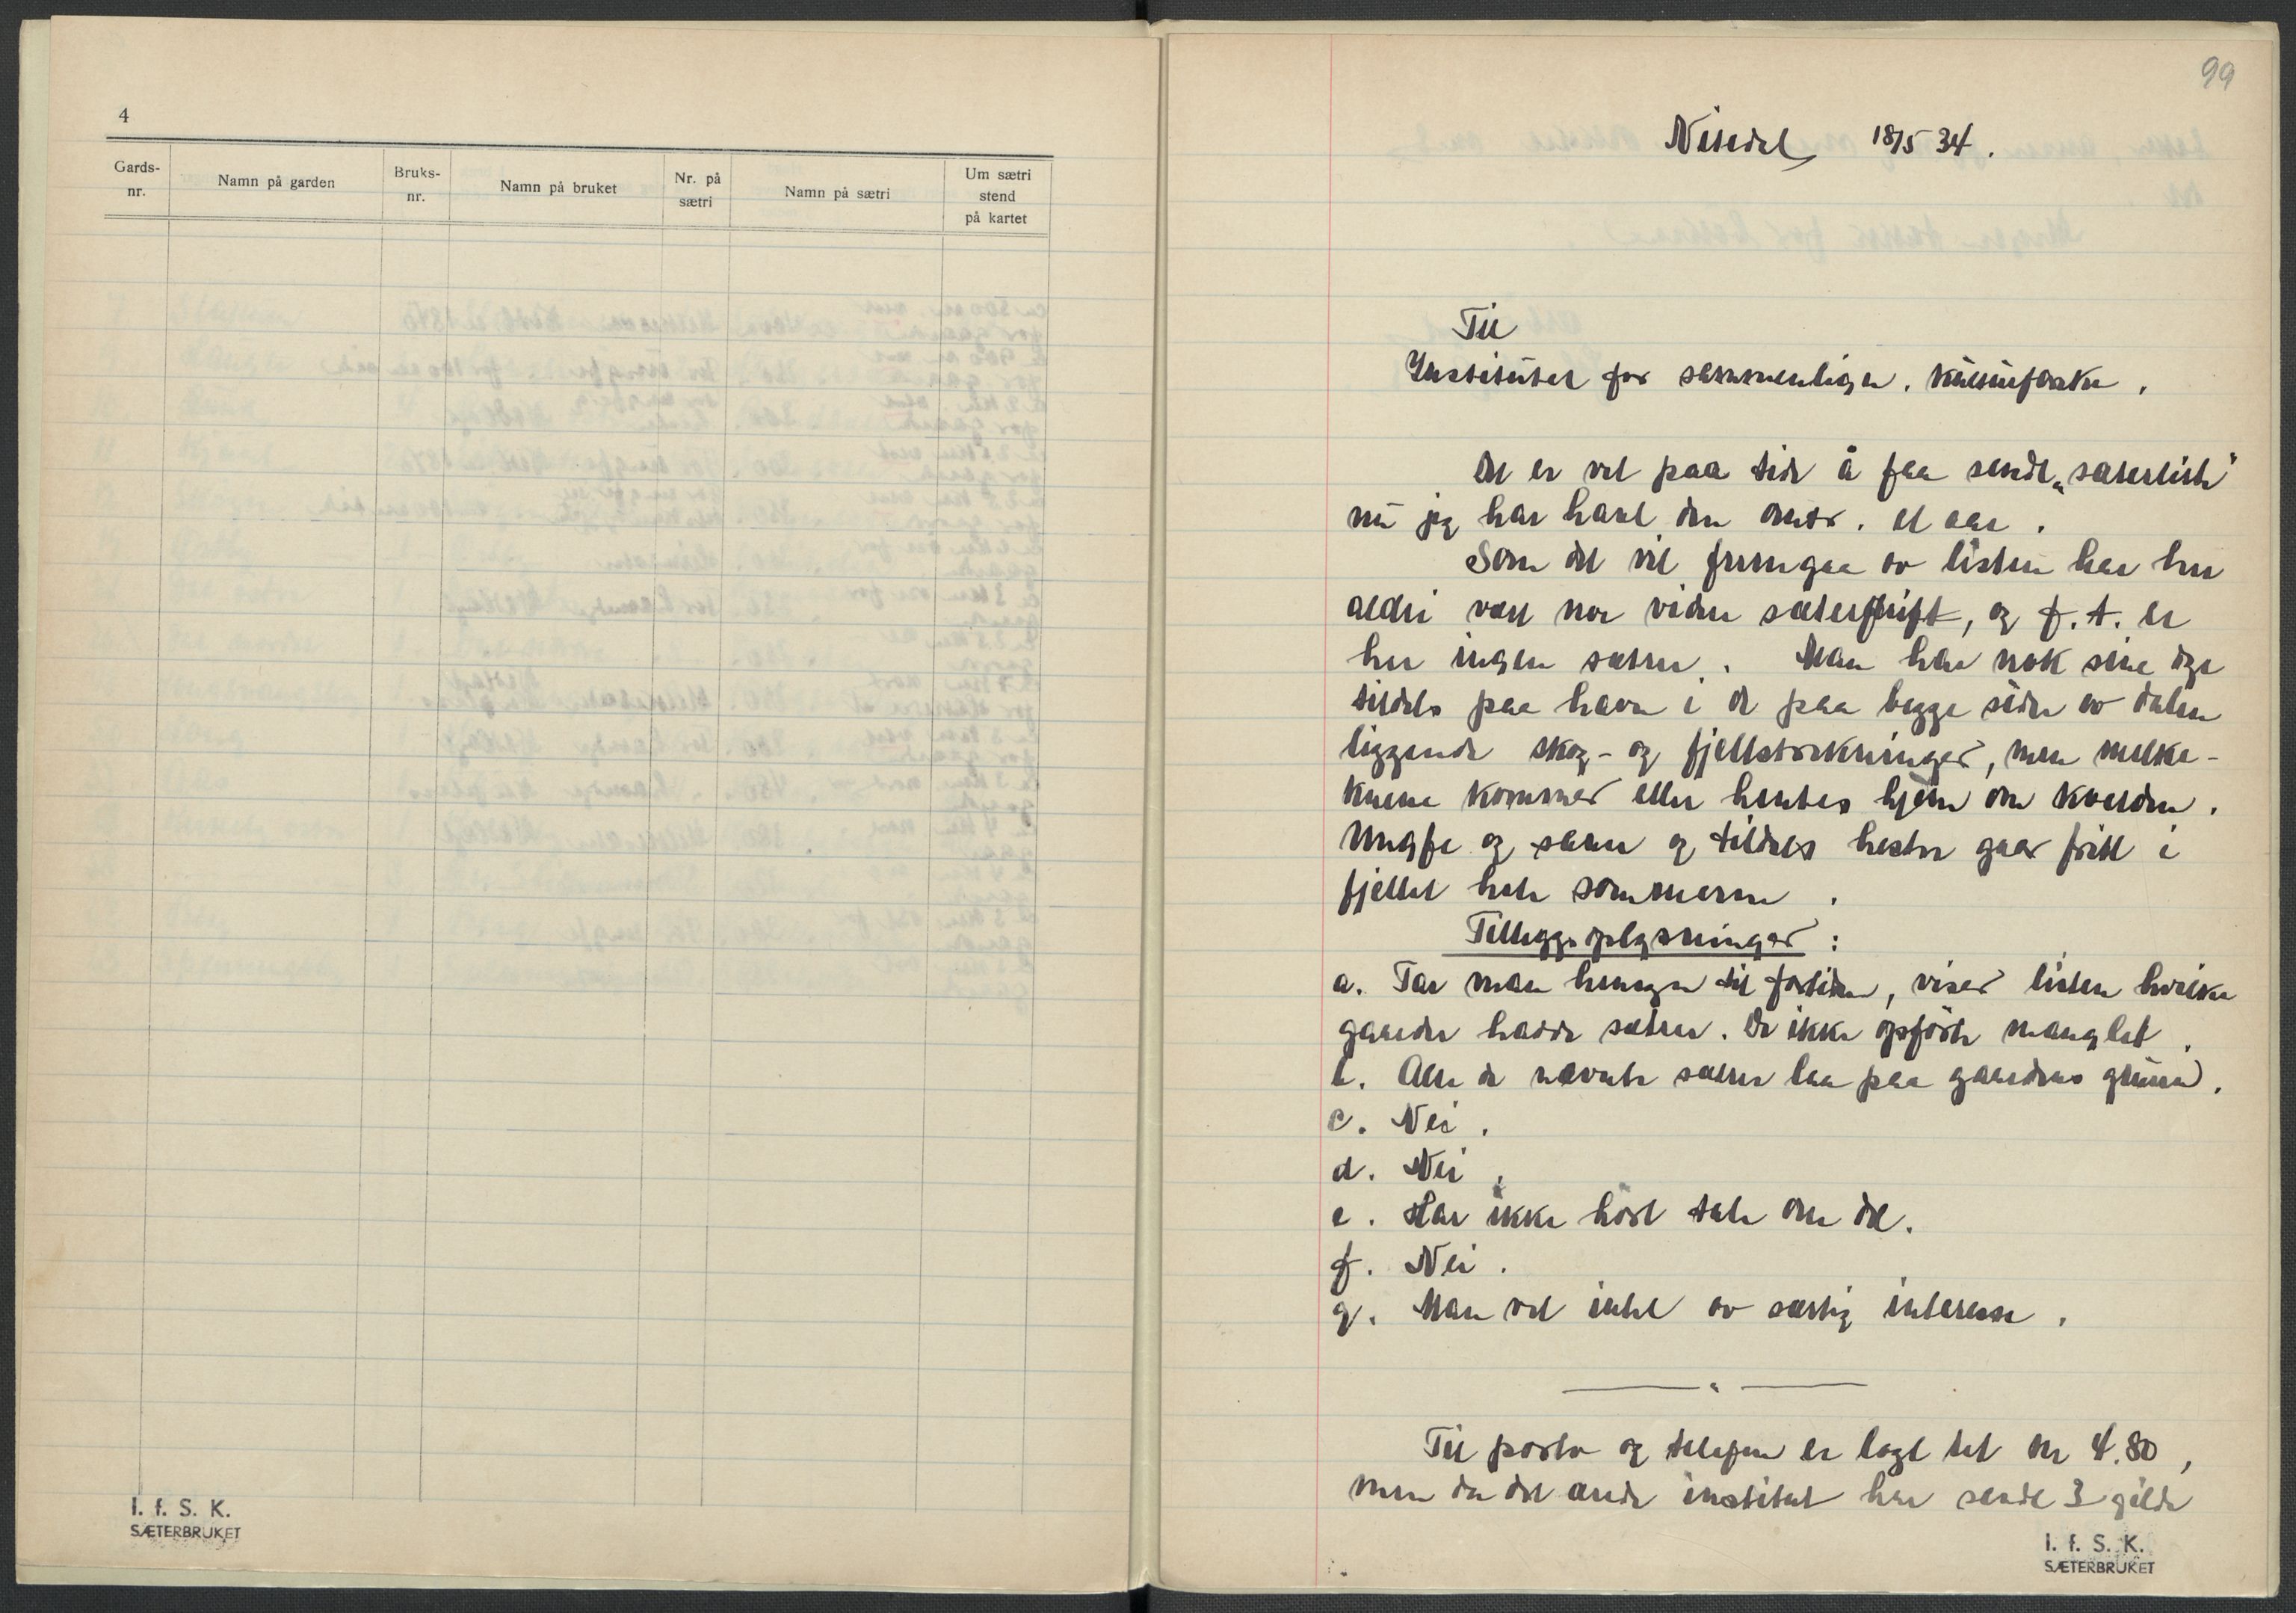 4
Gards-
nr.
Namn på garden
Bruks-
nr.
Namn på bruket
Nr. på
sætri
Namn på sætri
Um sætri
stend
på kartet
I. f. S. K.
SÆTERBRUKET
99
Nisedal 18/5 34.
Til
Institutet for sammenlign. kulturforskn.
Det er vel paa tide å faa sendt „sæterliste"
nu jeg har havt den omtr. et aar.
Som det vil fremgaa av listen har her
aldri vært noe videre sæterdrift, og f. t. er
her ingen sætrer. Man har nok sine dyr
tildels paa havn i de paa begge sider av dalen
liggende skog- og fjellstrekninger, men melke-
kuene kommer eller hentes hjem om kvelden.
Ungfe og sauer og tildels hester gaar fritt i
fjellet hele sommeren.
Tilleggsoplysninger:
a. Tar man hensyn til fortiden, viser listen hvilke
gaarder hadde sætrer. De ikke opførte manglet.
b. Alle de nævnte sætrer laa paa gaardens grunn.
c. Nei.
d. Nei.
e. Har ikke hørt tale om det.
f. Nei.
g. Man vet intet av særlig interesse.
Til porto og telefon er lagt ut kr 4.80,
men da det ærede institut har sendt 3 gilde
I. f. S. K.
SÆTERBRUKET